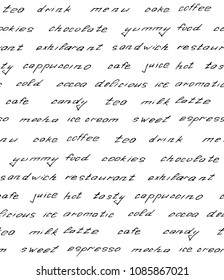 tea drink menu cake coffee
cookies chocolate yummy food co
ses exhilarant sandwich restauran
ty cappuccino cafe juice hot ta
cold cocoa delicious ice aromatic
cafe candy tea milk latte
mocha ice cream sweet espresso
nu cake coffee tea drink m
yummy food cookies chocolate
sandwich restaurant exhilarant
cafe juice hot tasty cappuccino
s ice aromatic cold cocoa de
milk latte cafe candy t
m sweet espresso mocha ice crea
shutterstock.com · 1085867021